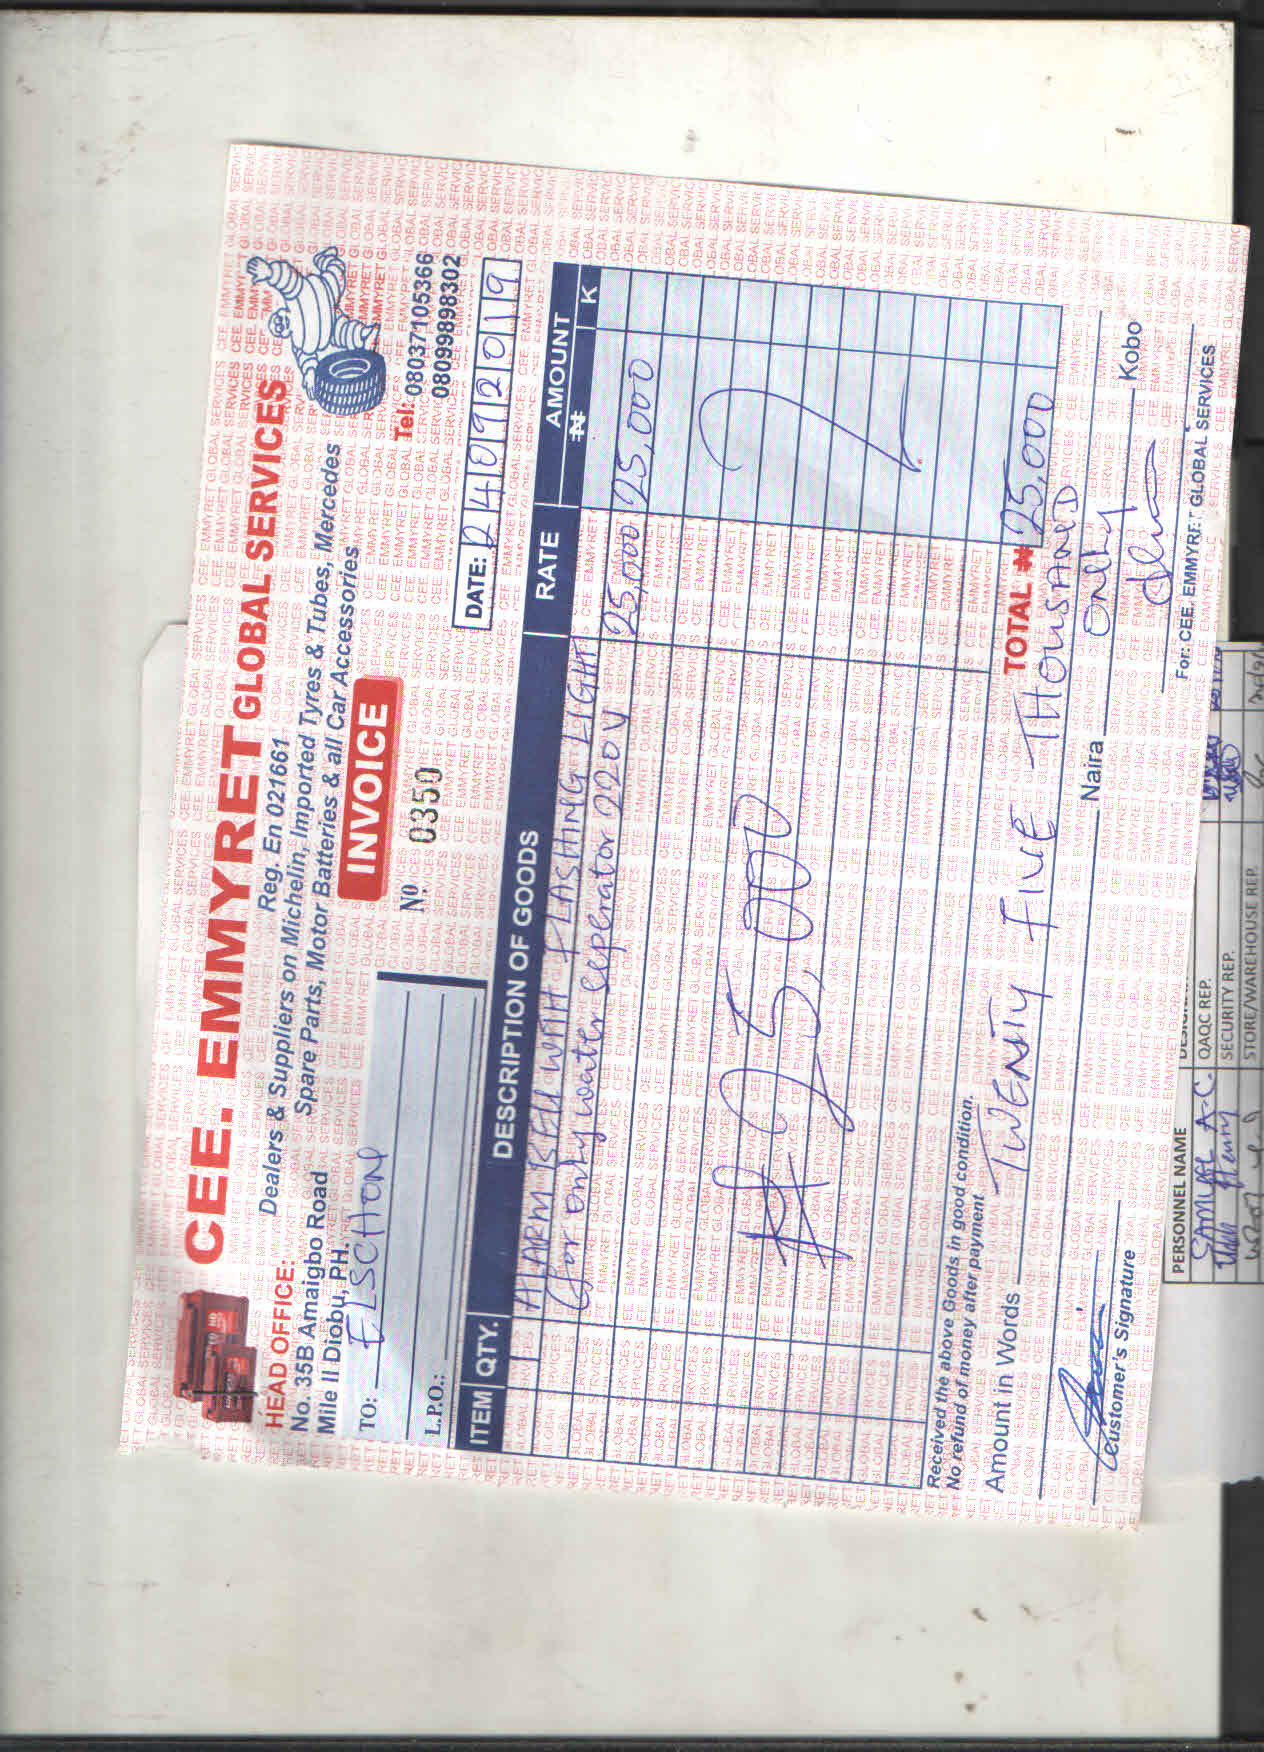 CEE. EMMYRET GLOBAL SERVICES
Reg. En 021661
Dealers & Suppliers on Michelin, Imported Tyres & Tubes, Mercedes
Spare Parts, Motor Batteries & all Car Accessories
HEAD OFFICE:
No. 35B Amaigbo Road
Mile II Diobu, PH.
Tel: 08037105366
08099898302
INVOICE
TO: ELSCHON
L.P.O.:
NO. 0350
DATE: 24092019
ITEM QTY. DESCRIPTION OF GOODS RATE AMOUNT
₦ K
ALARM BELL WITH FLASHING LIGHT
for omly water seperator 220V 25,000 25,000
₦25,000
Received the above Goods in good condition.
No refund of money after payment
TOTAL ₦ 25,000
Amount in Words TWENTY FIVE THOUSAND
Naira ONLY Kobo
Customer's Signature
For: CEE. EMMYRET GLOBAL SERVICES
PERSONNEL NAME
SAMUEL A.C. QAQC REP.
Henry SECURITY REP.
STORE/WAREHOUSE REP.